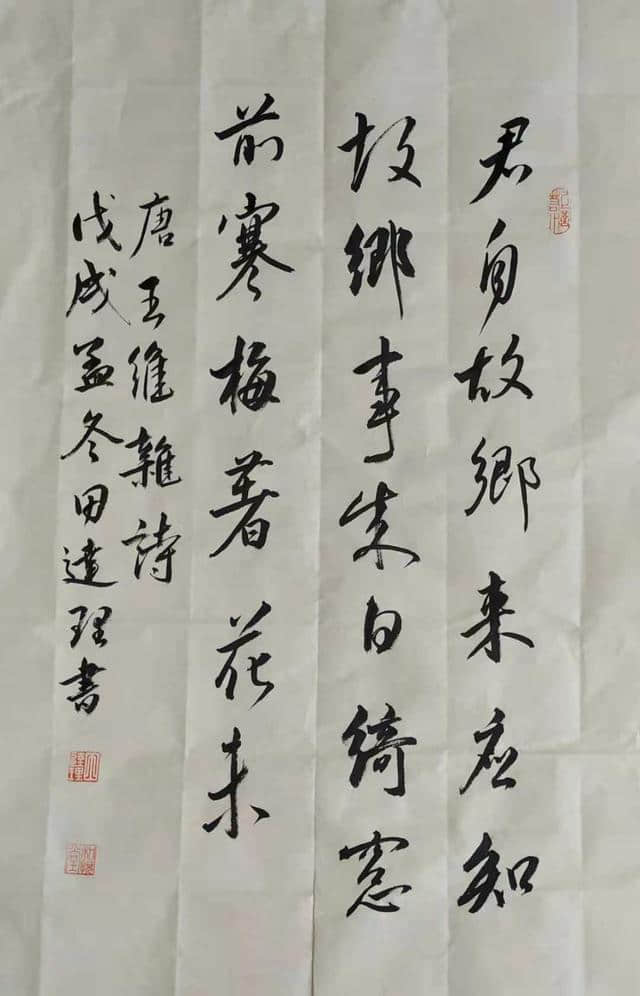 君自故鄉来应知
故鄉事来日綺窓
前寒梅著花未
唐王維雜詩
戊戌孟冬田達理書